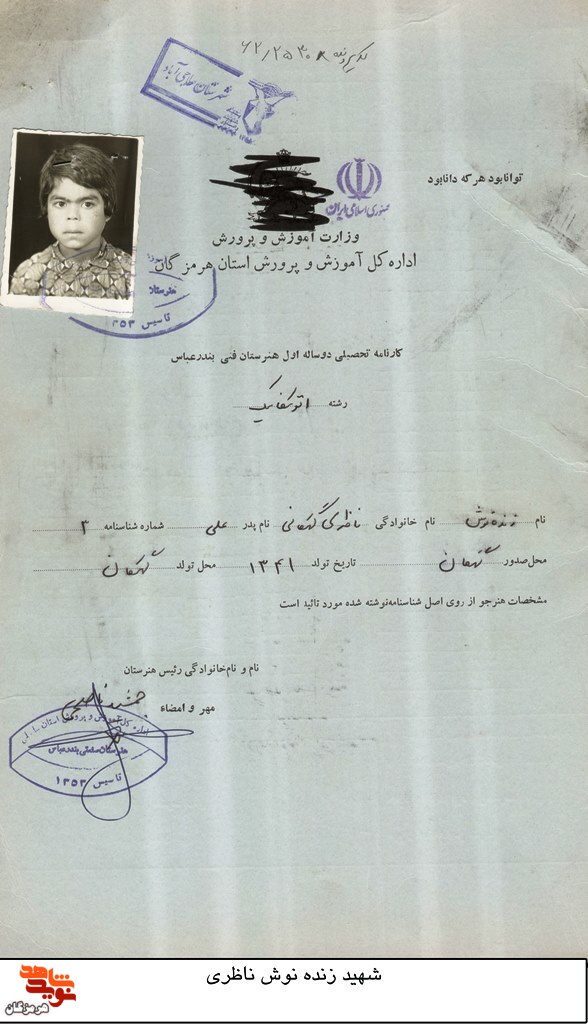 شهرستان حاجی‌آباد
توانا بود هر که دانا بود
جمهوری اسلامی ایران
وزارت آموزش و پرورش
اداره کل آموزش و پرورش استان هرمزگان
تاسیس ۱۳۵۳
کارنامه تحصیلی دوساله اول هنرستان فنی بندرعباس
رشته اتومکانیک
نام زنده نوش نام خانوادگی ناظری گهکانی نام پدر علی شماره شناسنامه ۳
محل صدور گهکان تاریخ تولد ۱۳۴۱ محل تولد گهکان
مشخصات هنرجو از روی اصل شناسنامه نوشته شده مورد تائید است
نام و نام خانوادگی رئیس هنرستان
مهر و امضاء جمشید
اداره کل آموزش و پرورش استان
هنرستان صنعتی بندرعباس
تاسیس ۱۳۵۳
شهید زنده نوش ناظری
نوید شاهد
هرمزگان